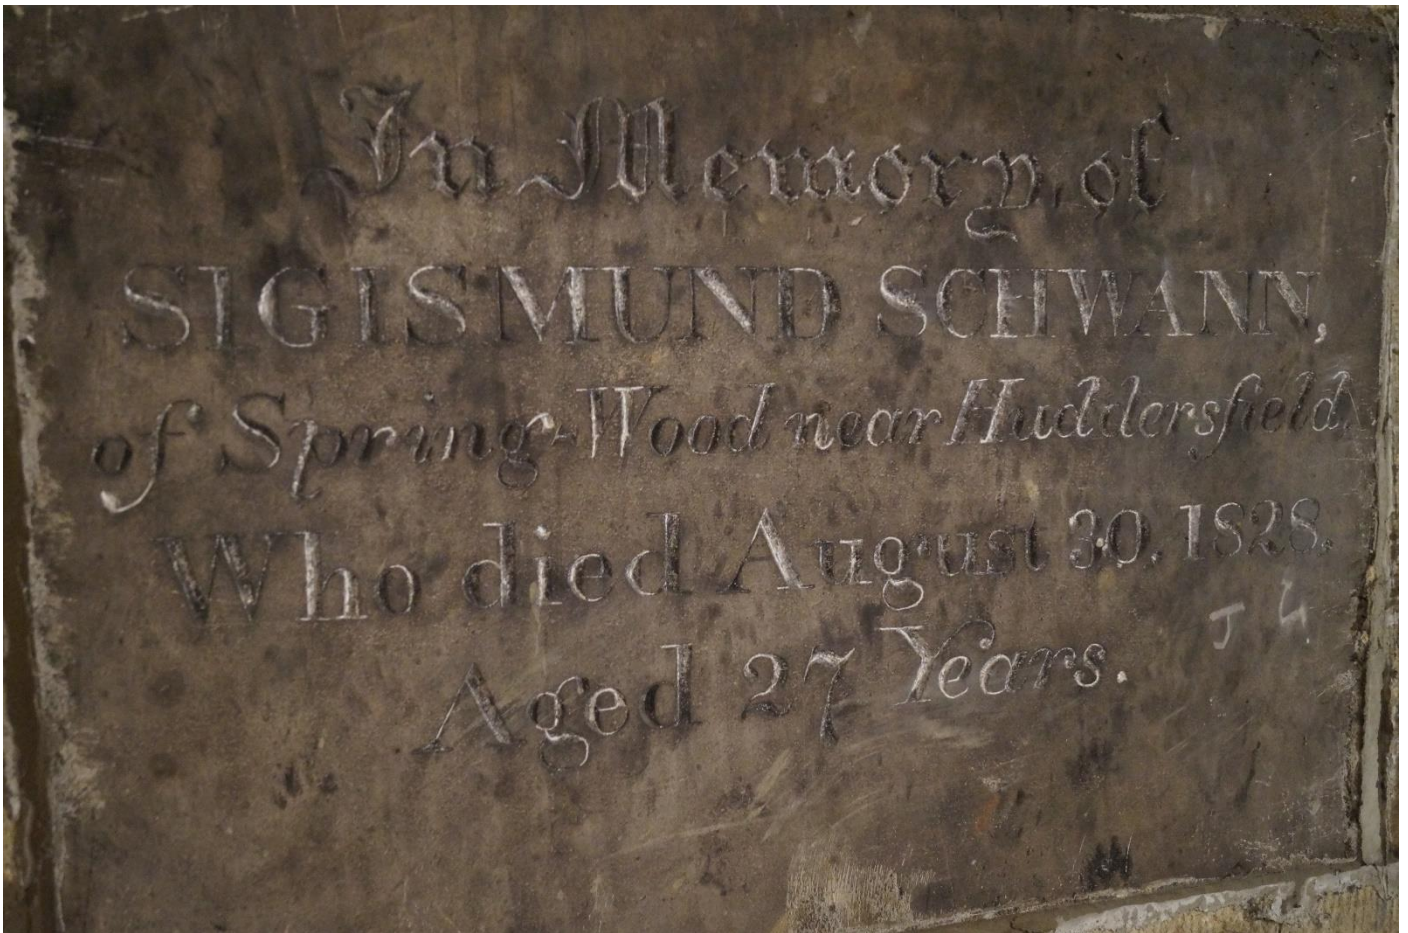 In Memory of
SIGISMUND SCHWANN,
of Spring-Wood near Huddersfield
Who died August 30. 1828.
J
Aged 27 Years.